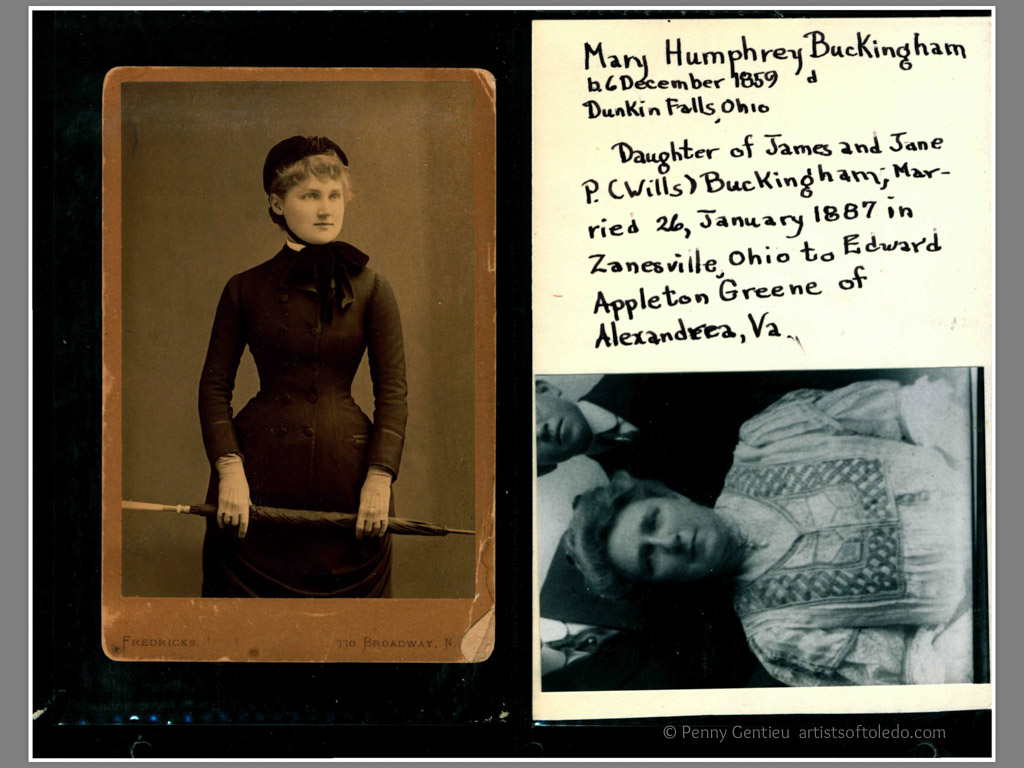 FREDRICKS,
770 BROADWAY, N.
Mary Humphrey Buckingham
b. 6 December 1859 d
Dunkin Falls, Ohio
Daughter of James and Jane
P. (Wills) Buckingham; Mar-
ried 26, January 1887 in
Zanesville, Ohio to Edward
Appleton Greene of
Alexandreea, Va.
© Penny Gentieu artistsoftoledo.com